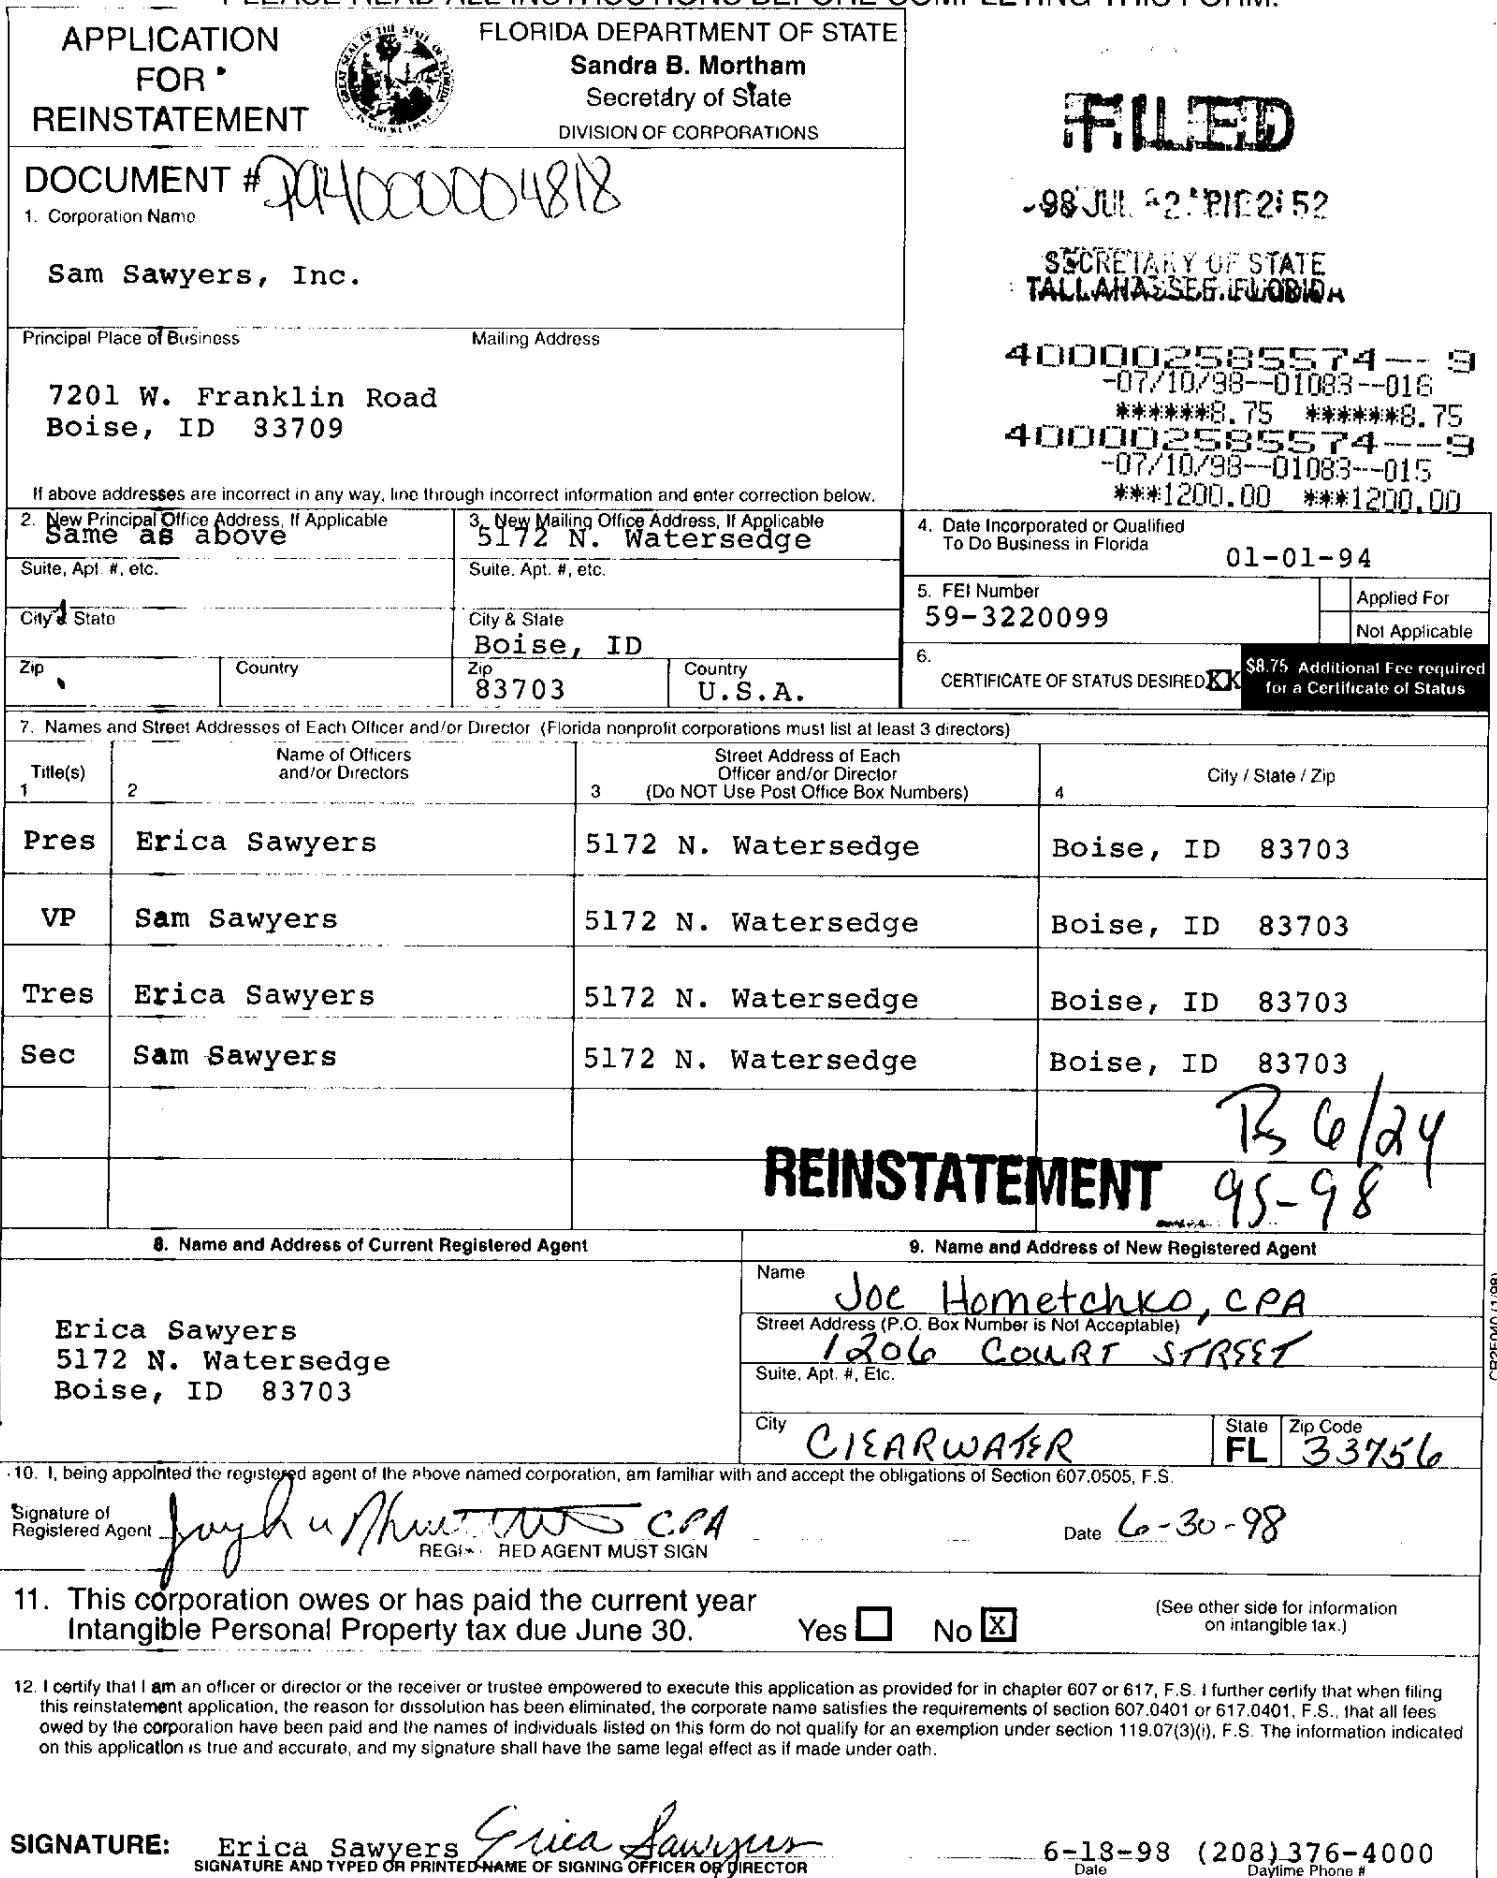 PLEASE READ ALL INSTRUCTIONS BEFORE COMPLETING THIS FORM.
APPLICATION
FOR
REINSTATEMENT
FLORIDA DEPARTMENT OF STATE
Sandra B. Mortham
Secretary of State
DIVISION OF CORPORATIONS
FILED
98 JUL -2 PM 2:52
SECRETARY OF STATE
TALLAHASSEE, FLORIDA
DOCUMENT # P94000004818
1. Corporation Name
Sam Sawyers, Inc.
Principal Place of Business
Mailing Address
7201 W. Franklin Road
Boise, ID 83709
400002585574--9
-07/10/98--01083--016
******8.75 ******8.75
400002585574--9
-07/10/98--01083--015
***1200.00 ***1200.00
If above addresses are incorrect in any way, line through incorrect information and enter correction below.
2. New Principal Office Address, If Applicable
Same as above
3. New Mailing Office Address, If Applicable
5172 N. Watersedge
4. Date Incorporated or Qualified
To Do Business in Florida
01-01-94
Suite, Apt. #, etc.
Suite, Apt. #, etc.
5. FEI Number
59-3220099
Applied For
Not Applicable
City & State
City & State
Boise, ID
Zip
Country
Zip
83703
Country
U.S.A.
6.
CERTIFICATE OF STATUS DESIRED XX
$8.75 Additional Fee required
for a Certificate of Status
7. Names and Street Addresses of Each Officer and/or Director (Florida nonprofit corporations must list at least 3 directors)
Title(s)
1
Name of Officers
and/or Directors
2
Street Address of Each
Officer and/or Director
3 (Do NOT Use Post Office Box Numbers)
City / State / Zip
4
Pres Erica Sawyers 5172 N. Watersedge Boise, ID 83703
VP Sam Sawyers 5172 N. Watersedge Boise, ID 83703
Tres Erica Sawyers 5172 N. Watersedge Boise, ID 83703
Sec Sam Sawyers 5172 N. Watersedge Boise, ID 83703
6/24
REINSTATEMENT 95-98
8. Name and Address of Current Registered Agent
Erica Sawyers
5172 N. Watersedge
Boise, ID 83703
9. Name and Address of New Registered Agent
Name
Joe Hometchko, CPA
Street Address (P.O. Box Number is Not Acceptable)
1206 COURT STREET
Suite, Apt. #, Etc.
City
CLEARWATER
State
FL
Zip Code
33756
CR2E040 (1/98)
10. I, being appointed the registered agent of the above named corporation, am familiar with and accept the obligations of Section 607.0505, F.S.
Signature of
Registered Agent
CPA
REGISTERED AGENT MUST SIGN
Date 6-30-98
11. This corporation owes or has paid the current year
Intangible Personal Property tax due June 30.
Yes
No X
(See other side for information
on intangible tax.)
12. I certify that I am an officer or director or the receiver or trustee empowered to execute this application as provided for in chapter 607 or 617, F.S. I further certify that when filing
this reinstatement application, the reason for dissolution has been eliminated, the corporate name satisfies the requirements of section 607.0401 or 617.0401, F.S., that all fees
owed by the corporation have been paid and the names of individuals listed on this form do not qualify for an exemption under section 119.07(3)(i), F.S. The information indicated
on this application is true and accurate, and my signature shall have the same legal effect as if made under oath.
SIGNATURE: Erica Sawyers Erica Sawyers 6-18-98 (208) 376-4000
SIGNATURE AND TYPED OR PRINTED NAME OF SIGNING OFFICER OR DIRECTOR
Date
Daytime Phone #